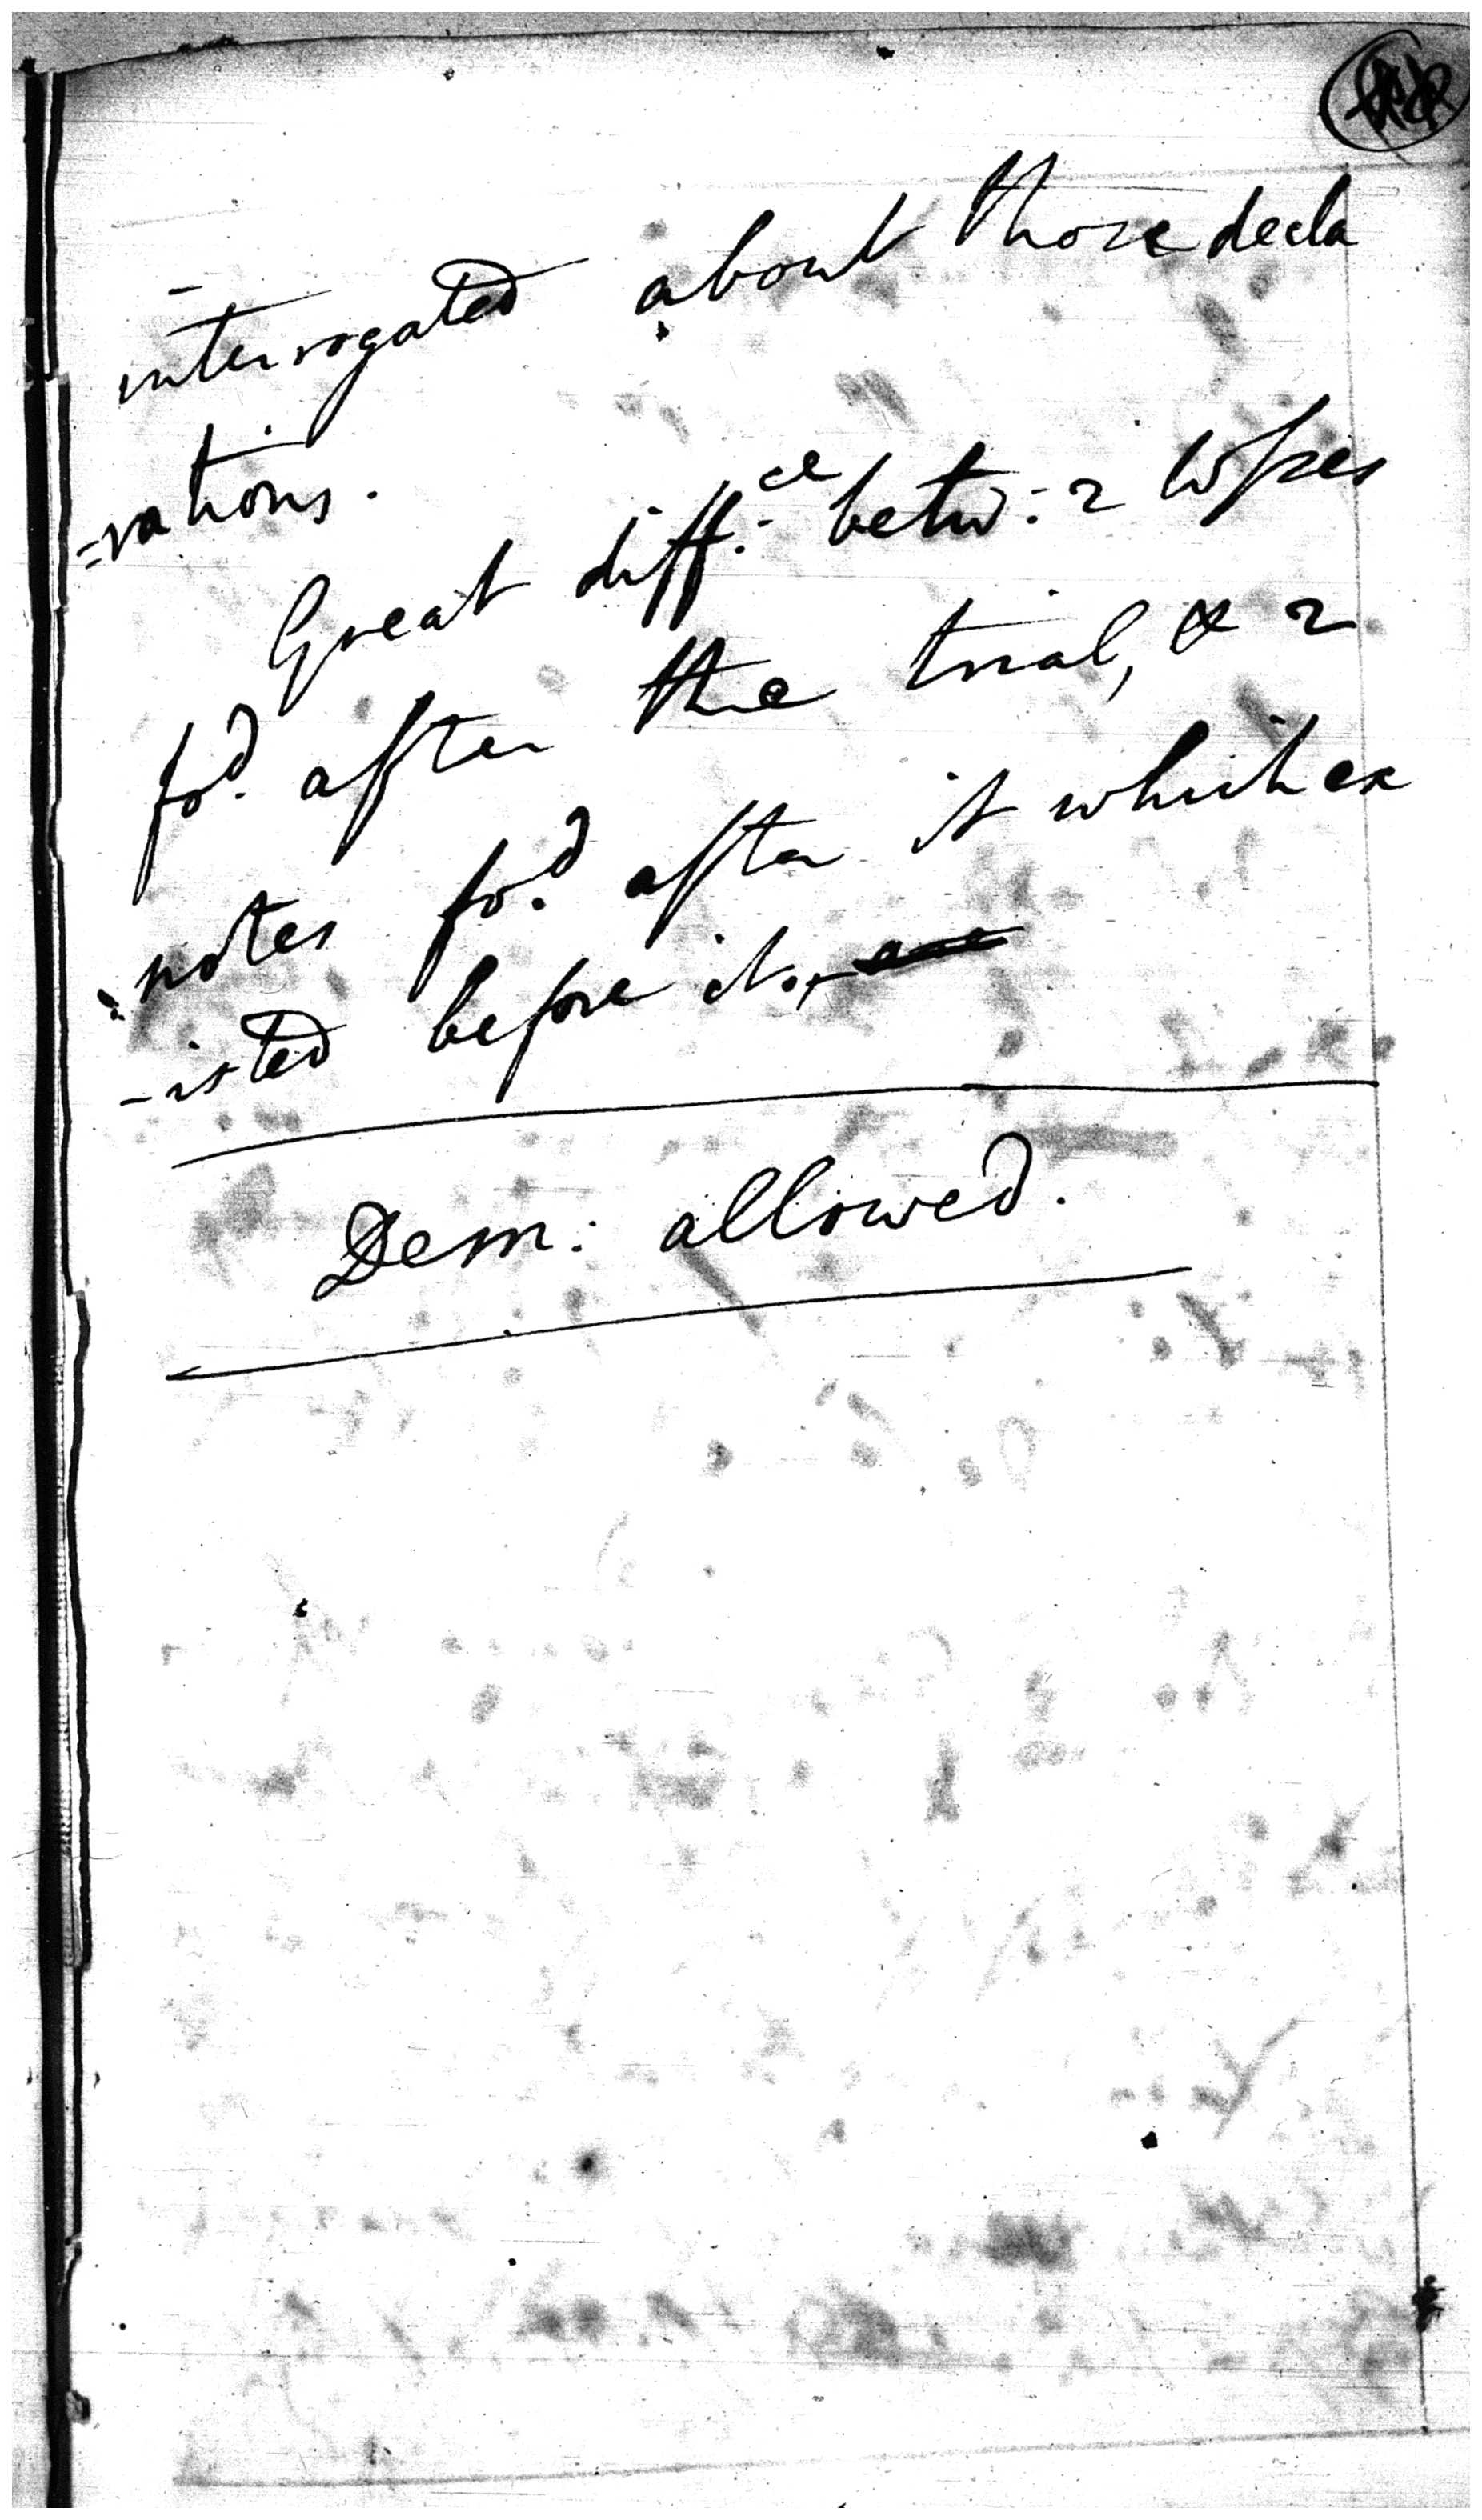 interrogated about those decla
=rations.
Great diff:ce betw: 2 wsses
fod. after the trial, & 2
notes fod. after it which ex
-isted before it.
Dem: allowed.